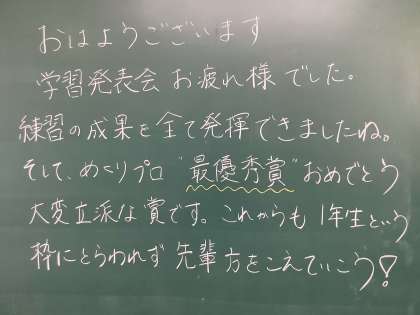 おはようございます
学習発表会 お疲れ様でした。
練習の成果を全て発揮できましたね。
そして、めくりプロ"最優秀賞"おめでとう
大変立派な賞です。これからも1年生という
枠にとらわれず先輩方をこえていこう!